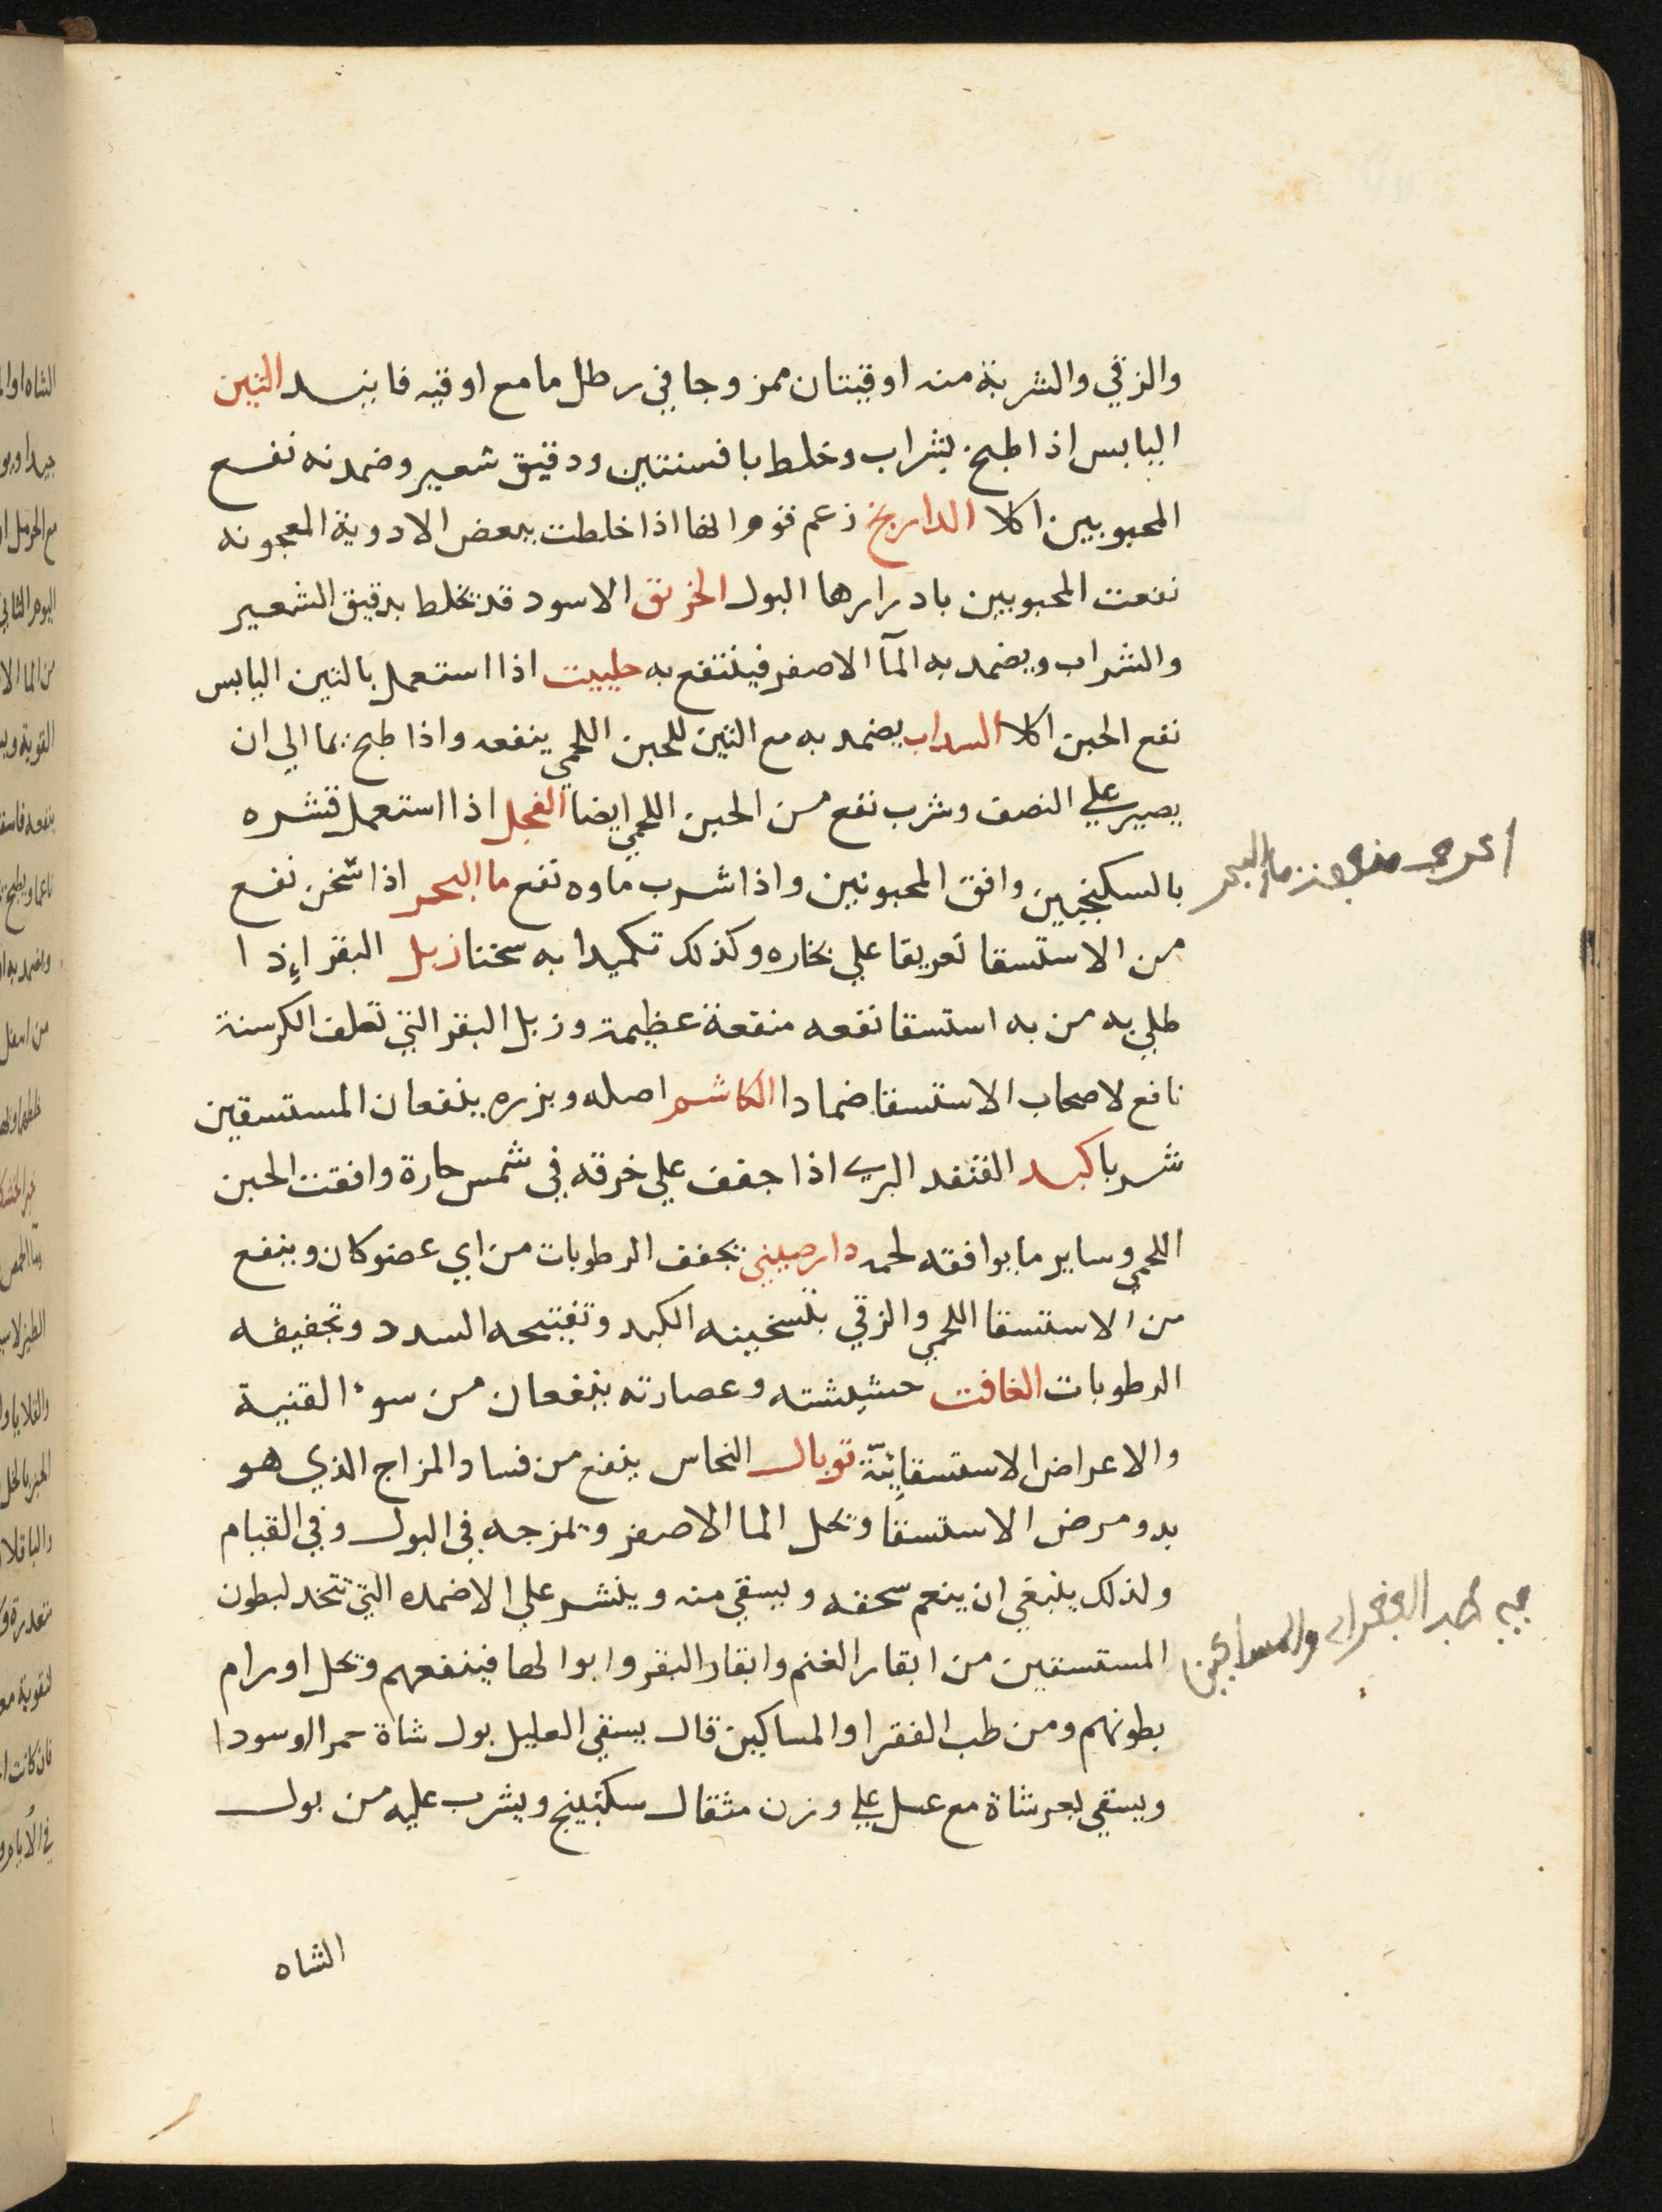 والزقي والشربة منه اوقيتان ممزوجا في رطل ما مع اوقيه فانيد التين
اليابس اذا طبخ بشراب وخلط بافسنتين ودقيق شعير وضمدته نفع
المحبوبين اكلا الداريخ زعم قوم انها اذا خلطت ببعض الادوية المعجونه
نفعت المحبوبين بادرارها البول الخربق الاسود قد تخلط بدقيق الشعير
والشراب ويضمد به المآ الاصفر فينتفع به حلتيت اذا استعمل بالتين اليابس
نفع الحبن اكلا السداب يضمد به مع التين للحبن اللحمي ينفعه واذا طبخ بما الي ان
يصير علي النصف وشرب نفع من الحبن اللحمي ايضا الفجل اذا استعمل قشره
بالسكنجبين وافق المحبونين واذا شرب ماوه نفع ما البحر اذا سخن نفع
من الاستسقا تعريقا علي بخاره وكذلك تكميدا به سخنا زبل البقر اذا
طلي به من به استسقا نفعه منفعة عظيمة وزبل البقر التي تعلف الكرسنة
نافع لاصحاب الاستسقا ضمادا الكاشم اصله وبزره ينفعان المستسقين
شربا كبد القنفد البري اذا جفف علي خرقه في شمس حارة وافقت الحبن
اللحمي وساير ما يوافقه لحمه دارصيني تجفف الرطوبات من اي عضو كان وينفع
من الاستسقا اللحمي والزقي بتسخينه الكبد وتفتيحه السدد وتجفيفه
الرطوبات الغافت حشيشته وعصارته ينفعان من سوء القنية
والاعراض الاستسقايئة توبال النحاس ينفع من فساد المزاج الذي هو
بدو مرض الاستسقا وتحل الما الاصفر ويخرجه في البول وفي القيام
ولذلك ينبغي ان ينعم سحقه ويسقي منه وينشر علي الاضمده التي تتخد لبطون
المستسقين من ابعار الغنم وابعار البقر وابوالها فينفعهم وتحل اورام
بطونهم ومن طب الفقرا والمساكين قال يسقي العليل بول شاة حمرا او سودا
ويسقي بعر شاة مع عسل علي وزن مثقال سكبينج ويشرب عليه من بول
ماء البحر
طب الفقراء والمساكين
الشاه